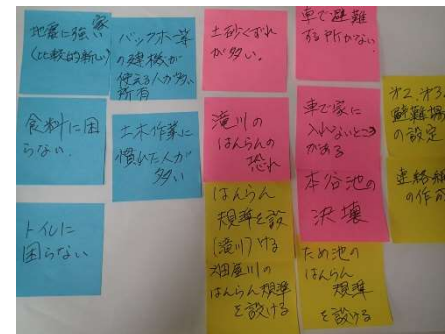 地震に強い家
(比較的新しい)
バックホー等
の建機が
使える人が多い
所有
土砂くずれ
が多い。
車で避難
する所がない
食料に困
らない。
土木作業に
慣れた人が
多い
滝川の
はんらんの
恐れ
車で家に
入れないところ
がある
オ2、オ3、
避難場
の設定
トイレに
困らない
はんらん
規準を設
(滝川)ける
畑屋川の
はんらん規準
を設ける
本谷池の
決壊
ため池の
はんらん
規準
を設ける
連絡網
の作成